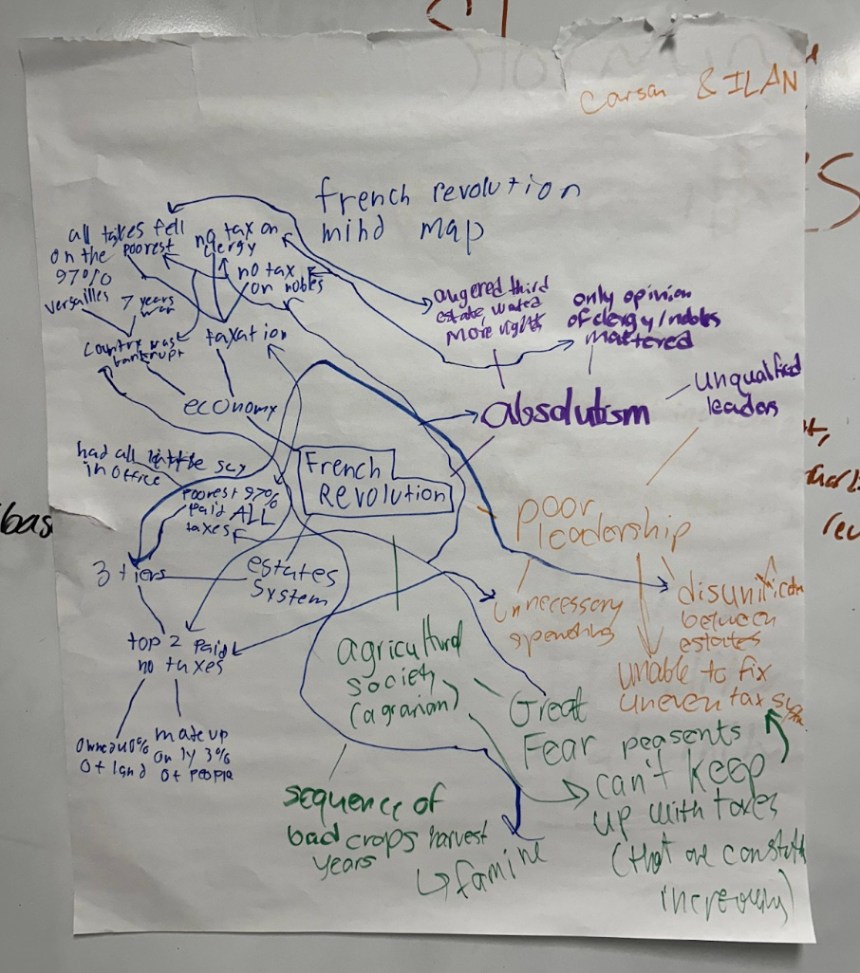 Carson & ILAN
french revolution
mind map
all taxes fell
on the poorest
97%
no tax on
clergy
no tax
on nobles
Versailles
7 years
war
Country was
bankrupt
taxation
economy
angered third
estate, wated
More rights
only opinion
of clergy/nobles
mattered
absolutism
Unqualified
leaders
had all little say
in office
French
REVOLUTION
Poorest 97%
paid ALL
taxes
3 tiers
estates
System
poor
leadership
unnecessory
spending
disunification
between
estates
unable to fix
uneven tax sys
top 2 paid
no taxes
owned 40%
of land
made up
only 3%
of people
agricultural
society
(agrarian)
Great
Fear
peasents
can't keep
up with taxes
(that are
increasing)
sequence of
bad crops harvest
years
famine
bas